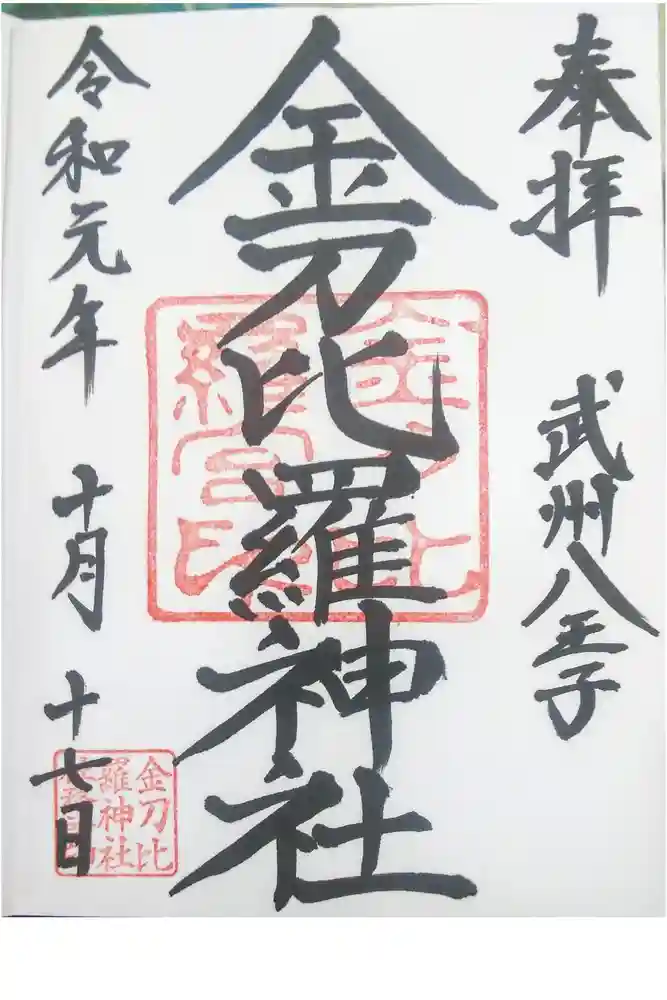 奉拝
武州八王子
金刀比羅神社
令和元年
十月
十七日
金刀比
羅宮印
金刀比
羅神社